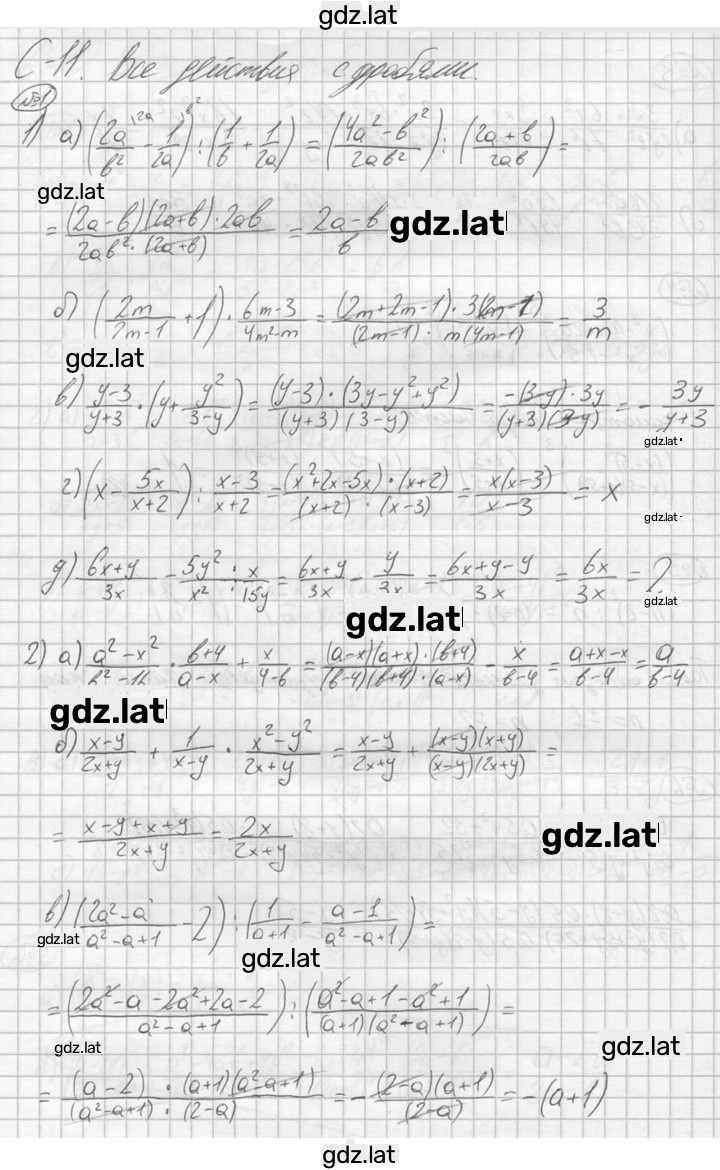 gdz.lat
С-11. Все действия с дробями.
№1
1) а) (2a/b² - 1/2a) : (1/b + 1/2a) = (4a² - b²/2ab²) : (2a+b/2ab) =
gdz.lat
= (2a-b)(2a+b)·2ab/2ab²·(2a+b) = 2a-b/b gdz.lat
б) (2m/2m-1 + 1) · 6m-3/4m²-m = (2m+2m-1)·3(2m-1)/(2m-1)·m(4m-1) = 3/m
gdz.lat
в) y-3/y+3 · (y + y²/3-y) = (y-3)·(3y-y²+y²)/(y+3)(3-y) = -(3-y)·3y/(y+3)(3-y) = - 3y/y+3
gdz.lat
г) (x - 5x/x+2) : x-3/x+2 = (x²+2x-5x)·(x+2)/(x+2)·(x-3) = x(x-3)/x-3 = x
gdz.lat
д) 6x+y/3x - 5y²/x² · x/15y = 6x+y/3x - y/3x = 6x+y-y/3x = 6x/3x = 2
gdz.lat
gdz.lat
2) а) a²-x²/b²-16 · b+4/a-x + x/4-b = (a-x)(a+x)·(b+4)/(b-4)(b+4)·(a-x) - x/b-4 = a+x-x/b-4 = a/b-4
gdz.lat
б) x-y/2x+y + 1/x-y · x²-y²/2x+y = x-y/2x+y + (x-y)(x+y)/(x-y)(2x+y) =
= x-y+x+y/2x+y = 2x/2x+y gdz.lat
в) (2a²-a/a²-a+1 - 2) : (1/a+1 - a-1/a²-a+1) =
gdz.lat
gdz.lat
= (2a²-a-2a²+2a-2/a²-a+1) : (a²-a+1-a²+1/(a+1)(a²-a+1)) =
gdz.lat
gdz.lat
= (a-2)·(a+1)(a²-a+1)/(a²-a+1)·(2-a) = - (2-a)(a+1)/(2-a) = -(a+1)
gdz.lat